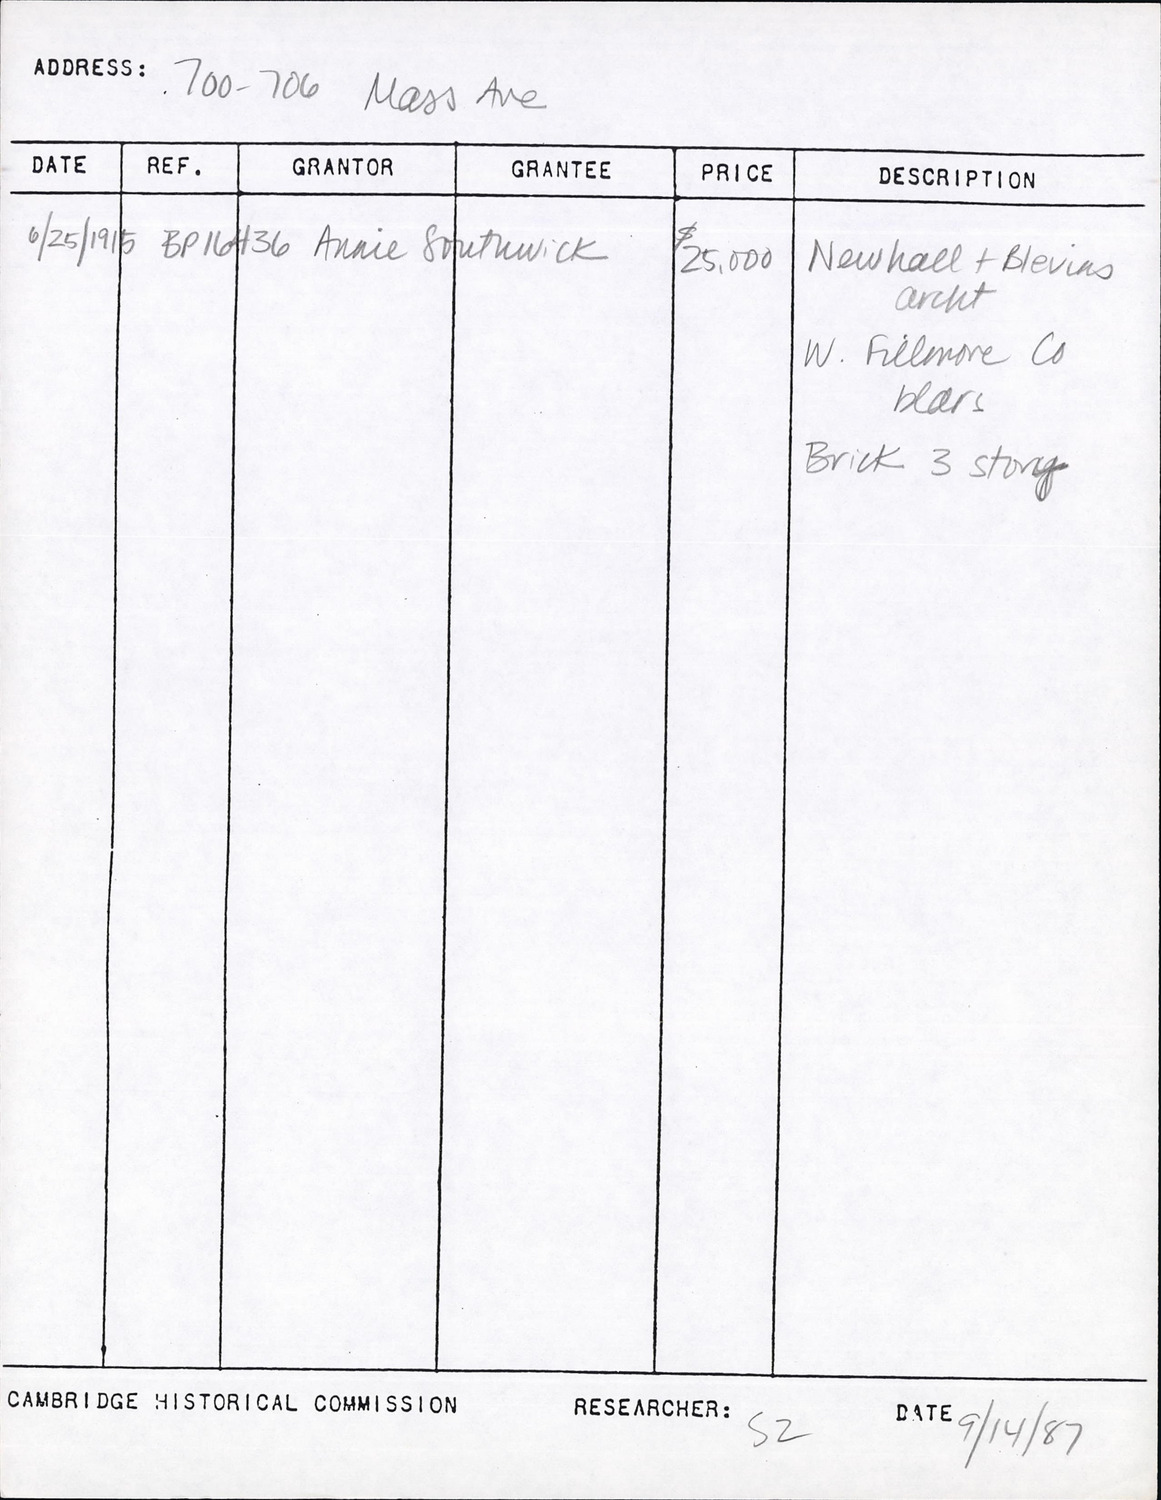 ADDRESS: 700-706 Mass Ave
DATE REF. GRANTOR GRANTEE PRICE DESCRIPTION
6/25/1915 BP 16436 Annie Southwick $25,000 Newhall + Blevins
archt
W. Fillmore Co
bldrs
Brick 3 story
CAMBRIDGE HISTORICAL COMMISSION RESEARCHER: SZ DATE 9/14/87